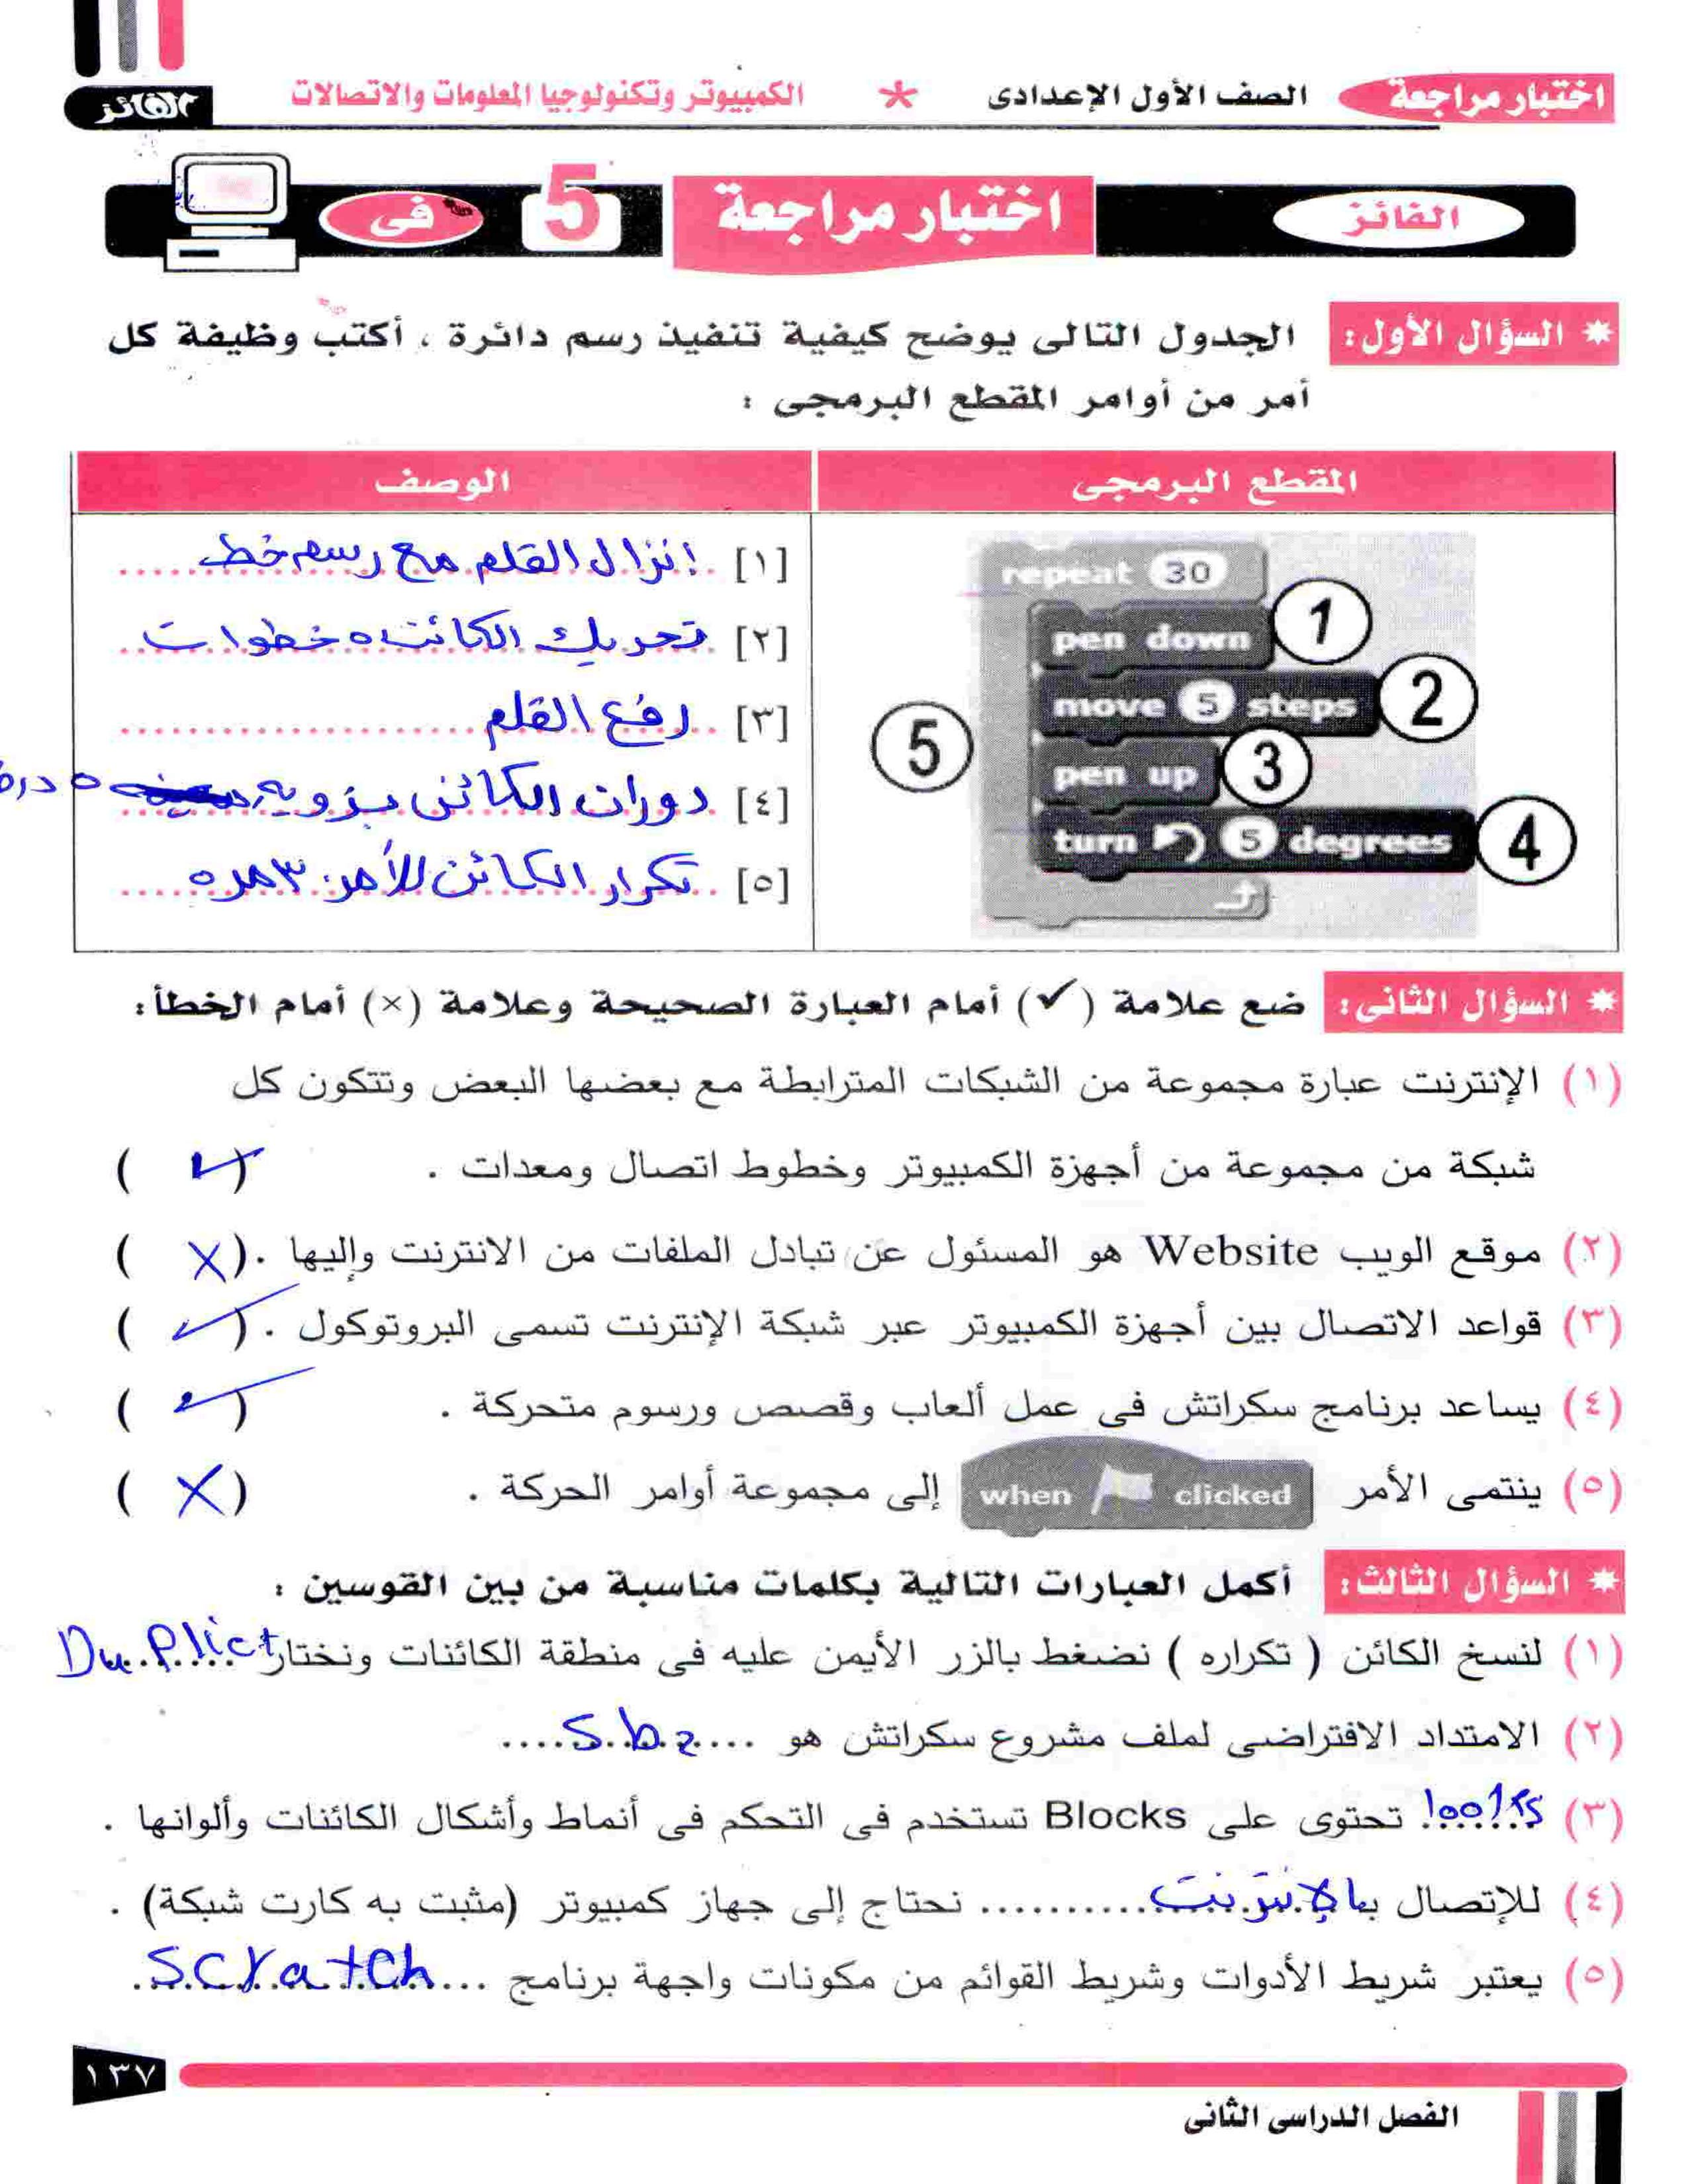 اختبار مراجعة الصف الأول الإعدادى * الكمبيوتر وتكنولوجيا المعلومات والاتصالات الفائز
الفائز اختبار مراجعة 5 فى
* السؤال الأول: الجدول التالى يوضح كيفية تنفيذ رسم دائرة ، أكتب وظيفة كل
أمر من أوامر المقطع البرمجى :
المقطع البرمجى الوصف
repeat 30
pen down 1
move 5 steps 2
pen up 3
turn 5 degrees 4
5
[١] إنزال القلم مع رسم خط
[٢] تحريك الكائن ٥ خطوات
[٣] رفع القلم
[٤] دوران الكائن بزويه ٥ درج
[٥] تكرار الكائن للأمر ٣٠ مره
* السؤال الثانى: ضع علامة (✓) أمام العبارة الصحيحة وعلامة (×) أمام الخطأ:
(١) الإنترنت عبارة مجموعة من الشبكات المترابطة مع بعضها البعض وتتكون كل
شبكة من مجموعة من أجهزة الكمبيوتر وخطوط اتصال ومعدات . (✓)
(٢) موقع الويب Website هو المسئول عن تبادل الملفات من الانترنت وإليها . (X)
(٣) قواعد الاتصال بين أجهزة الكمبيوتر عبر شبكة الإنترنت تسمى البروتوكول . (✓)
(٤) يساعد برنامج سكراتش فى عمل ألعاب وقصص ورسوم متحركة . (✓)
(٥) ينتمى الأمر when clicked إلى مجموعة أوامر الحركة . (X)
* السؤال الثالث: أكمل العبارات التالية بكلمات مناسبة من بين القوسين :
(١) لنسخ الكائن ( تكراره ) نضغط بالزر الأيمن عليه فى منطقة الكائنات ونختار Duplict
(٢) الامتداد الافتراضى لملف مشروع سكراتش هو ....Sb2....
(٣) looks تحتوى على Blocks تستخدم فى التحكم فى أنماط وأشكال الكائنات وألوانها .
(٤) للإتصال بالإنترنت .......... نحتاج إلى جهاز كمبيوتر (مثبت به كارت شبكة) .
(٥) يعتبر شريط الأدوات وشريط القوائم من مكونات واجهة برنامج ...Scratch.
١٣٧
الفصل الدراسى الثانى